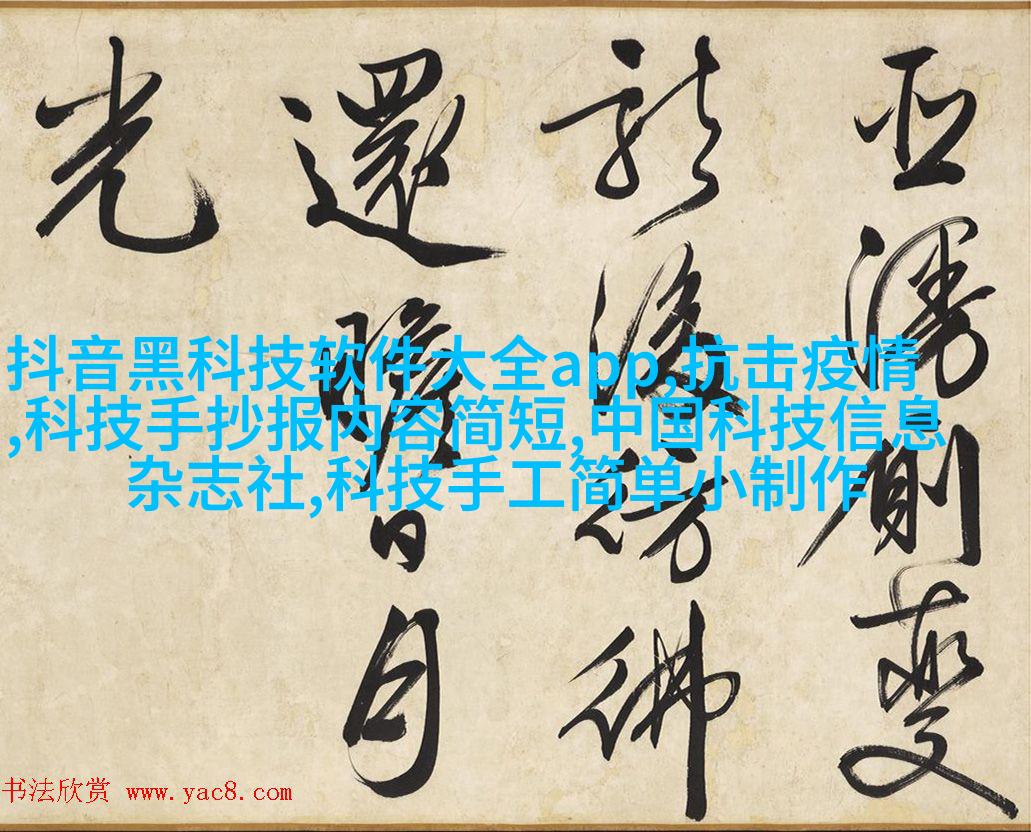 抖音黑科技软件大全app,抗击疫情
,科技手抄报内容简短,中国科技信息
杂志社,科技手工简单小制作
側變
後彷彿
還瞻日月
光
书法欣赏 www.yac8.com